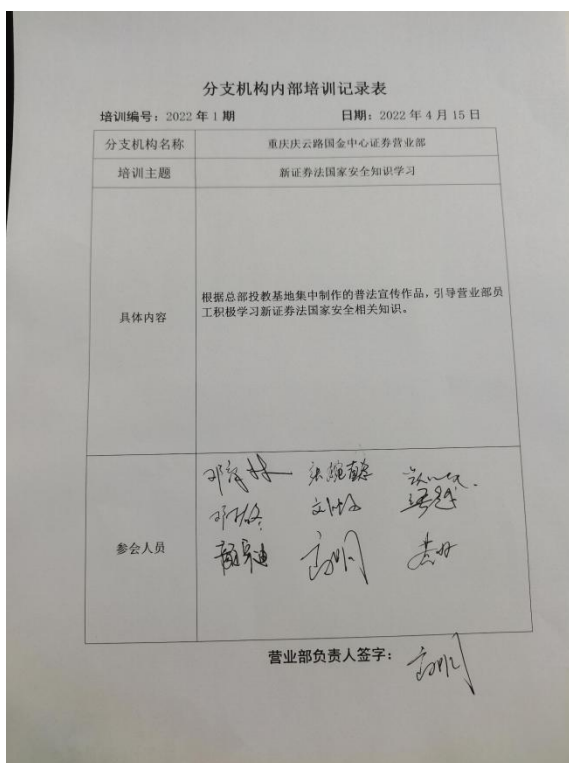 分支机构内部培训记录表
培训编号：2022 年 1 期 日期：2022 年 4 月 15 日
分支机构名称 重庆庆云路国金中心证券营业部
培训主题 新证券法国家安全知识学习
具体内容 根据总部投教基地集中制作的普法宣传作品，引导营业部员
工积极学习新证券法国家安全相关知识。
参会人员
高明
营业部负责人签字：高明